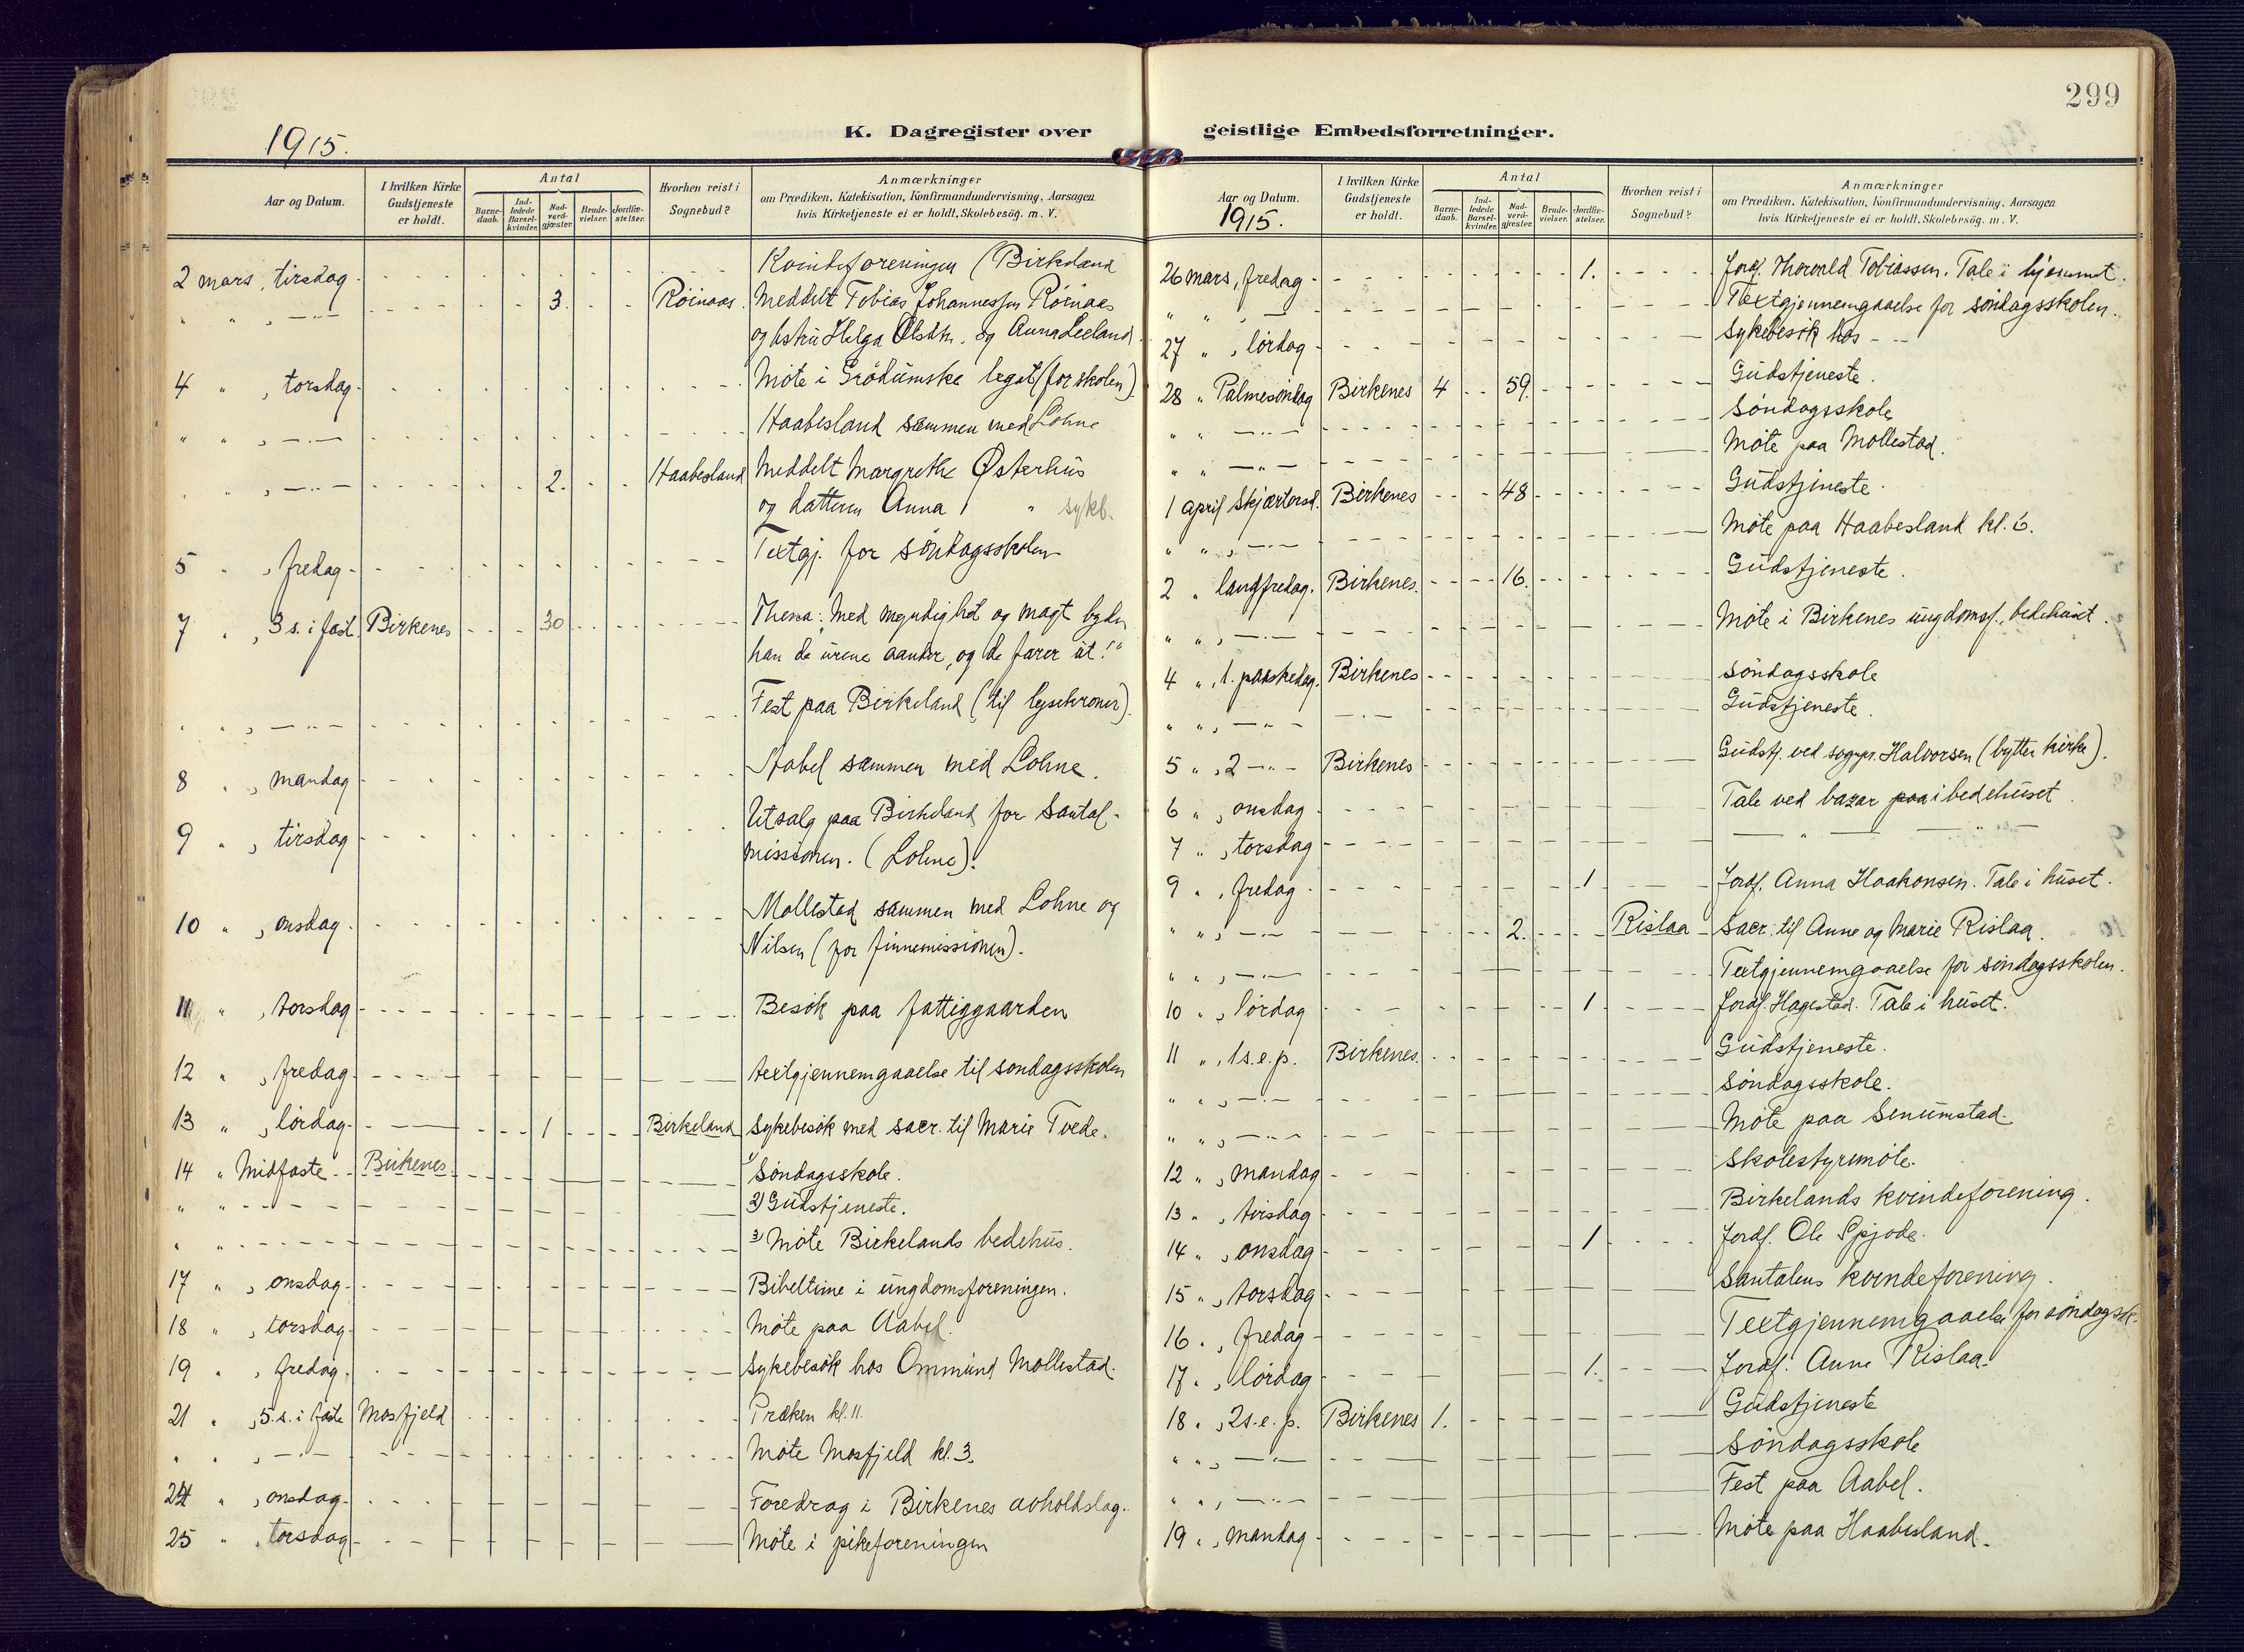 299
K. Dagregister over
1915.
Aar og Datum.
I hvilken Kirke Gudstjeneste er holdt.
Antal
Barnedaab.
Indledede Barselkvinder.
Nadverdgjæster.
Brudevielser.
Jordfæstelser.
Hvorhen reist i Sognebud?
Anmærkninger
om Prædiken, Katekisation, Konfirmandundervisning, Aarsagen
hvis Kirketjeneste ei er holdt, Skolebesøg. m. V.
2 mars, tirsdag - Kvindeforeningen (Birkeland
" " , —"— 3. Röinaas. Meddelt Tobias Johannessen Röinaas
og hstru Helga Olsdtr. og Anna Leeland.
4 " , torsdag - Möte i Grödumske legat (for skolen).
" " , —"— Haabesland sammen med Lohne
" " , —"— 2. Haabesland Meddelt Margrethe Østerhus
og datteren Anna " sykb.
5 " , fredag - Textgj. for söndagsskolen
7 " , 3 s. i fast. Birkenes 30 Thema: "Med myndighet og magt byder
han de urene aander, og de farer ut!"
" " , —"— Fest paa Birkeland (til lysekroner).
8 " , mandag Aabel sammen med Lohne.
9 " , tirsdag - Utsalg paa Birkeland for Santal-
missionen. (Lohne).
10 " , onsdag. Mollestad sammen med Lohne og
Nilsen (for finnemissionen).
11 " , torsdag - Besök paa fattiggaarden
12 " , fredag - textgjennemgaaelse til sondagsskolen
13 " , lördag - 1 Birkeland Sykebesök med sacr. til Marie Tvede.
14 " Midfaste - Birkenes. 1) Söndagsskole.
" " 2) Gudstjeneste.
" " 3) Möte Birkelands bedehus.
17 " , onsdag - Bibeltime i ungdomsforeningen.
18 " , torsdag - Möte paa Aabel.
19 " , fredag. Sykebesök hos Ommund Mollestad.
21 " , 5. s. i faste Mosfjeld Præken kl. 11.
" " , —"— Möte Mosfjeld kl. 3.
24 " , onsdag - Foredrag i Birkenes avholdslag.
25 " , torsdag - Möte i pikeforeningen
geistlige Embedsforretninger.
Aar og Datum.
1915.
I hvilken Kirke Gudstjeneste er holdt.
Antal
Barnedaab.
Indledede Barselkvinder.
Nadverdgjæster.
Brudevielser.
Jordfæstelser.
Hvorhen reist i Sognebud?
Anmærkninger
om Prædiken, Katekisation, Konfirmandundervisning, Aarsagen
hvis Kirketjeneste ei er holdt, Skolebesøg. m. V.
26 mars, fredag - 1. Jordf. Thorvald Tobiassen. Tale i hjemmet.
" " , — Textgjennemgaaelse for söndagsskolen.
27 " , lördag - Sykebesök hos - --
28 " Palmesöndag Birkenes 4 59. Gudstjeneste.
" " —"— Söndagsskole
" " —"— Möte paa Mollestad.
1 april Skjærtorsd. Birkenes 48 Gudstjeneste.
" " , —"— Möte paa Haabesland kl. 6.
2 " langfredag. Birkenes. 16. Gudstjeneste.
" " , —"— Möte i Birkenes ungdomsf., bedehuset.
4 " , 1. paaskedag. Birkenes Söndagsskole
" " , —"— —"— Gudstjeneste.
5 " , 2 —"— Birkenes Gudstj. ved sognpr. Halvorsen (bytter kirke).
6 " , onsdag Tale ved bazar paa i bedehuset.
7 " , torsdag — " — — " —
9 " , fredag - 1 Jordf. Anna Haakonsen. Tale i huset.
" " , —"— 2. Rislaa Sacr. til Anne og Marie Rislaa.
" " , —"— Textgjennemgaaelse for söndagsskolen.
10 " , lördag 1 Jordf. Hagestad. Tale i huset.
11 " , 1 s. e. p. Birkenes. Gudstjeneste.
" " , —"— Söndagsskole.
" " , —"— Möte paa Senumstad.
12 " , mandag Skolestyremöte.
13 " , tirsdag Birkelands kvindeforening.
14 " , onsdag 1 Jordf. Ole Spjode.
15 " , torsdag Santalens kvindeforening.
16 " , fredag - Textgjennemgaaelse for söndagssk.
17 " , lördag 1. Jordf. Anne Rislaa.
18 " , 2 s. e. p. Birkenes 1. Gudstjeneste
" " , —"— Söndagsskole
" " , —"— Fest paa Aabel.
19 " , mandag - Möte paa Haabesland.